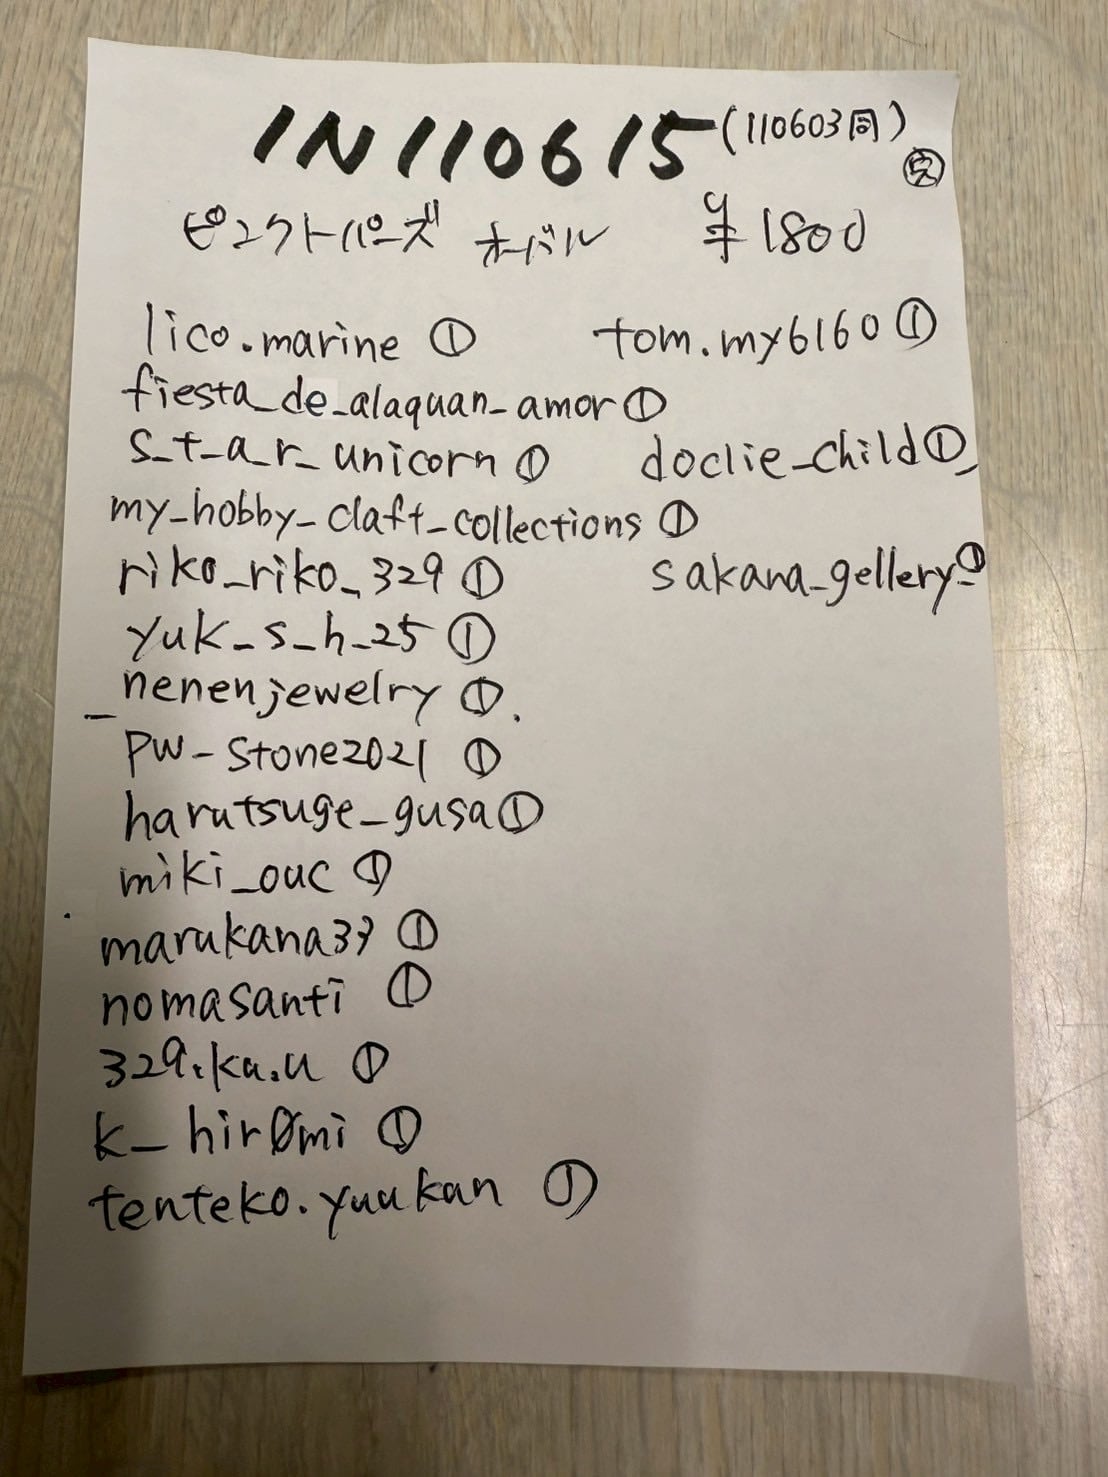 IN110615 (110603同)
㊡
ピンクトパーズ オーバル ¥1800
lico.marine ① tom.my6160 ①
fiesta_de_alaquan_amor ①
s_t_a_r_unicorn ① doclie_child ①
my_hobby_claft_collections ①
riko_riko_329 ① sakana_gellery_ ①
yuk_s_h_25 ①
_nenenjewelry ①
pw_stone2021 ①
harutsuge_gusa ①
miki_ouc ①
marukana33 ①
nomasanti ①
329.ka.u ①
k_hir0mi ①
tenteko.yuukan ①